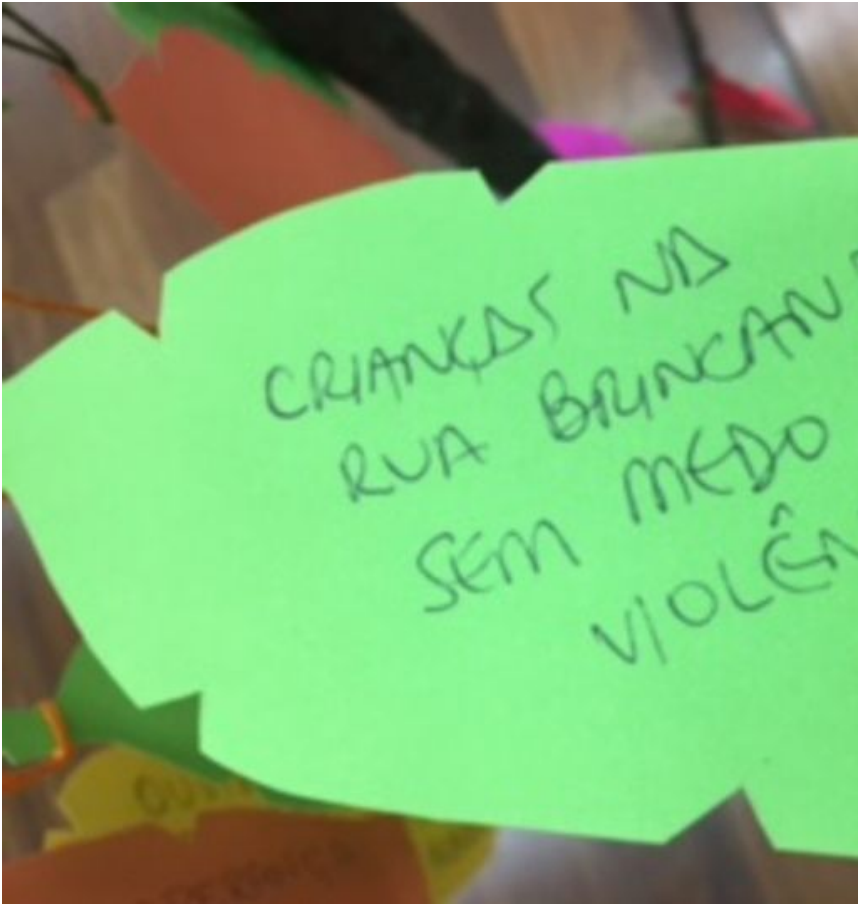 CRIANÇAS NA
RUA BRINCAN
SEM MEDO
VIOLÊN